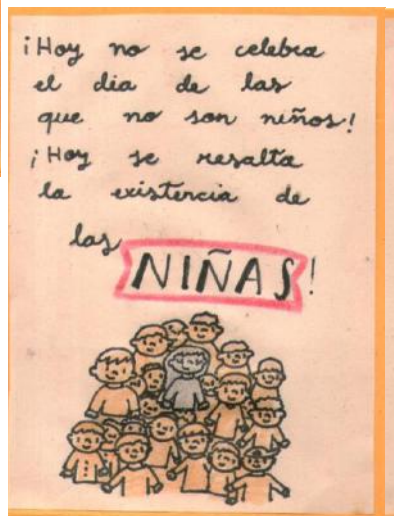 ¡Hoy no se celebra
el dia de las
que no son niños!
¡Hoy se resalta
la existencia de
las NIÑAS!